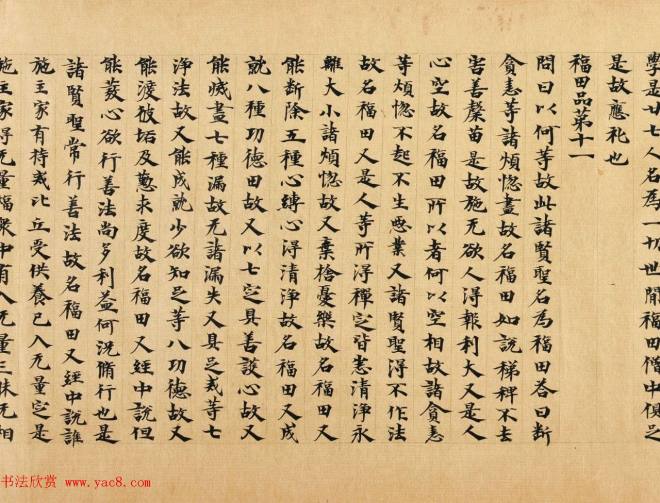 學是廿七人名為一切世間福田僧中便足
是故應礼也
福田品第十一
問曰以何等故此諸賢聖名為福田荅曰断
貪恚等諸煩惱盡故名福田如說稊稗不去
害善苗是故施无欲人得報利大又是人
心空故名福田所以者何以空相故諸貪恚
等煩惱不起不生惡業又諸賢聖得不作法
故名福田又是人等所得禪定皆悉清淨永
離大小諸煩惱故又棄捨憂樂故名福田又
能断除五種心縛心得清淨故名福田又成
就八種功德田故又以七定具善護心故又
能滅盡七種漏故无諸漏失又具足戒等七
淨法故又能成就少欲知足等八功德故又
能渡彼垢及懃求度故名福田又經中說但
能發心欲行善法尚多利益何況脩行也是
諸賢聖常行善法故名福田又經中說誰
施主家有持戒比丘受供養已入无量定是
施主家得无量福衆中有入无量三昧无相
书法欣赏 www.yac8.com